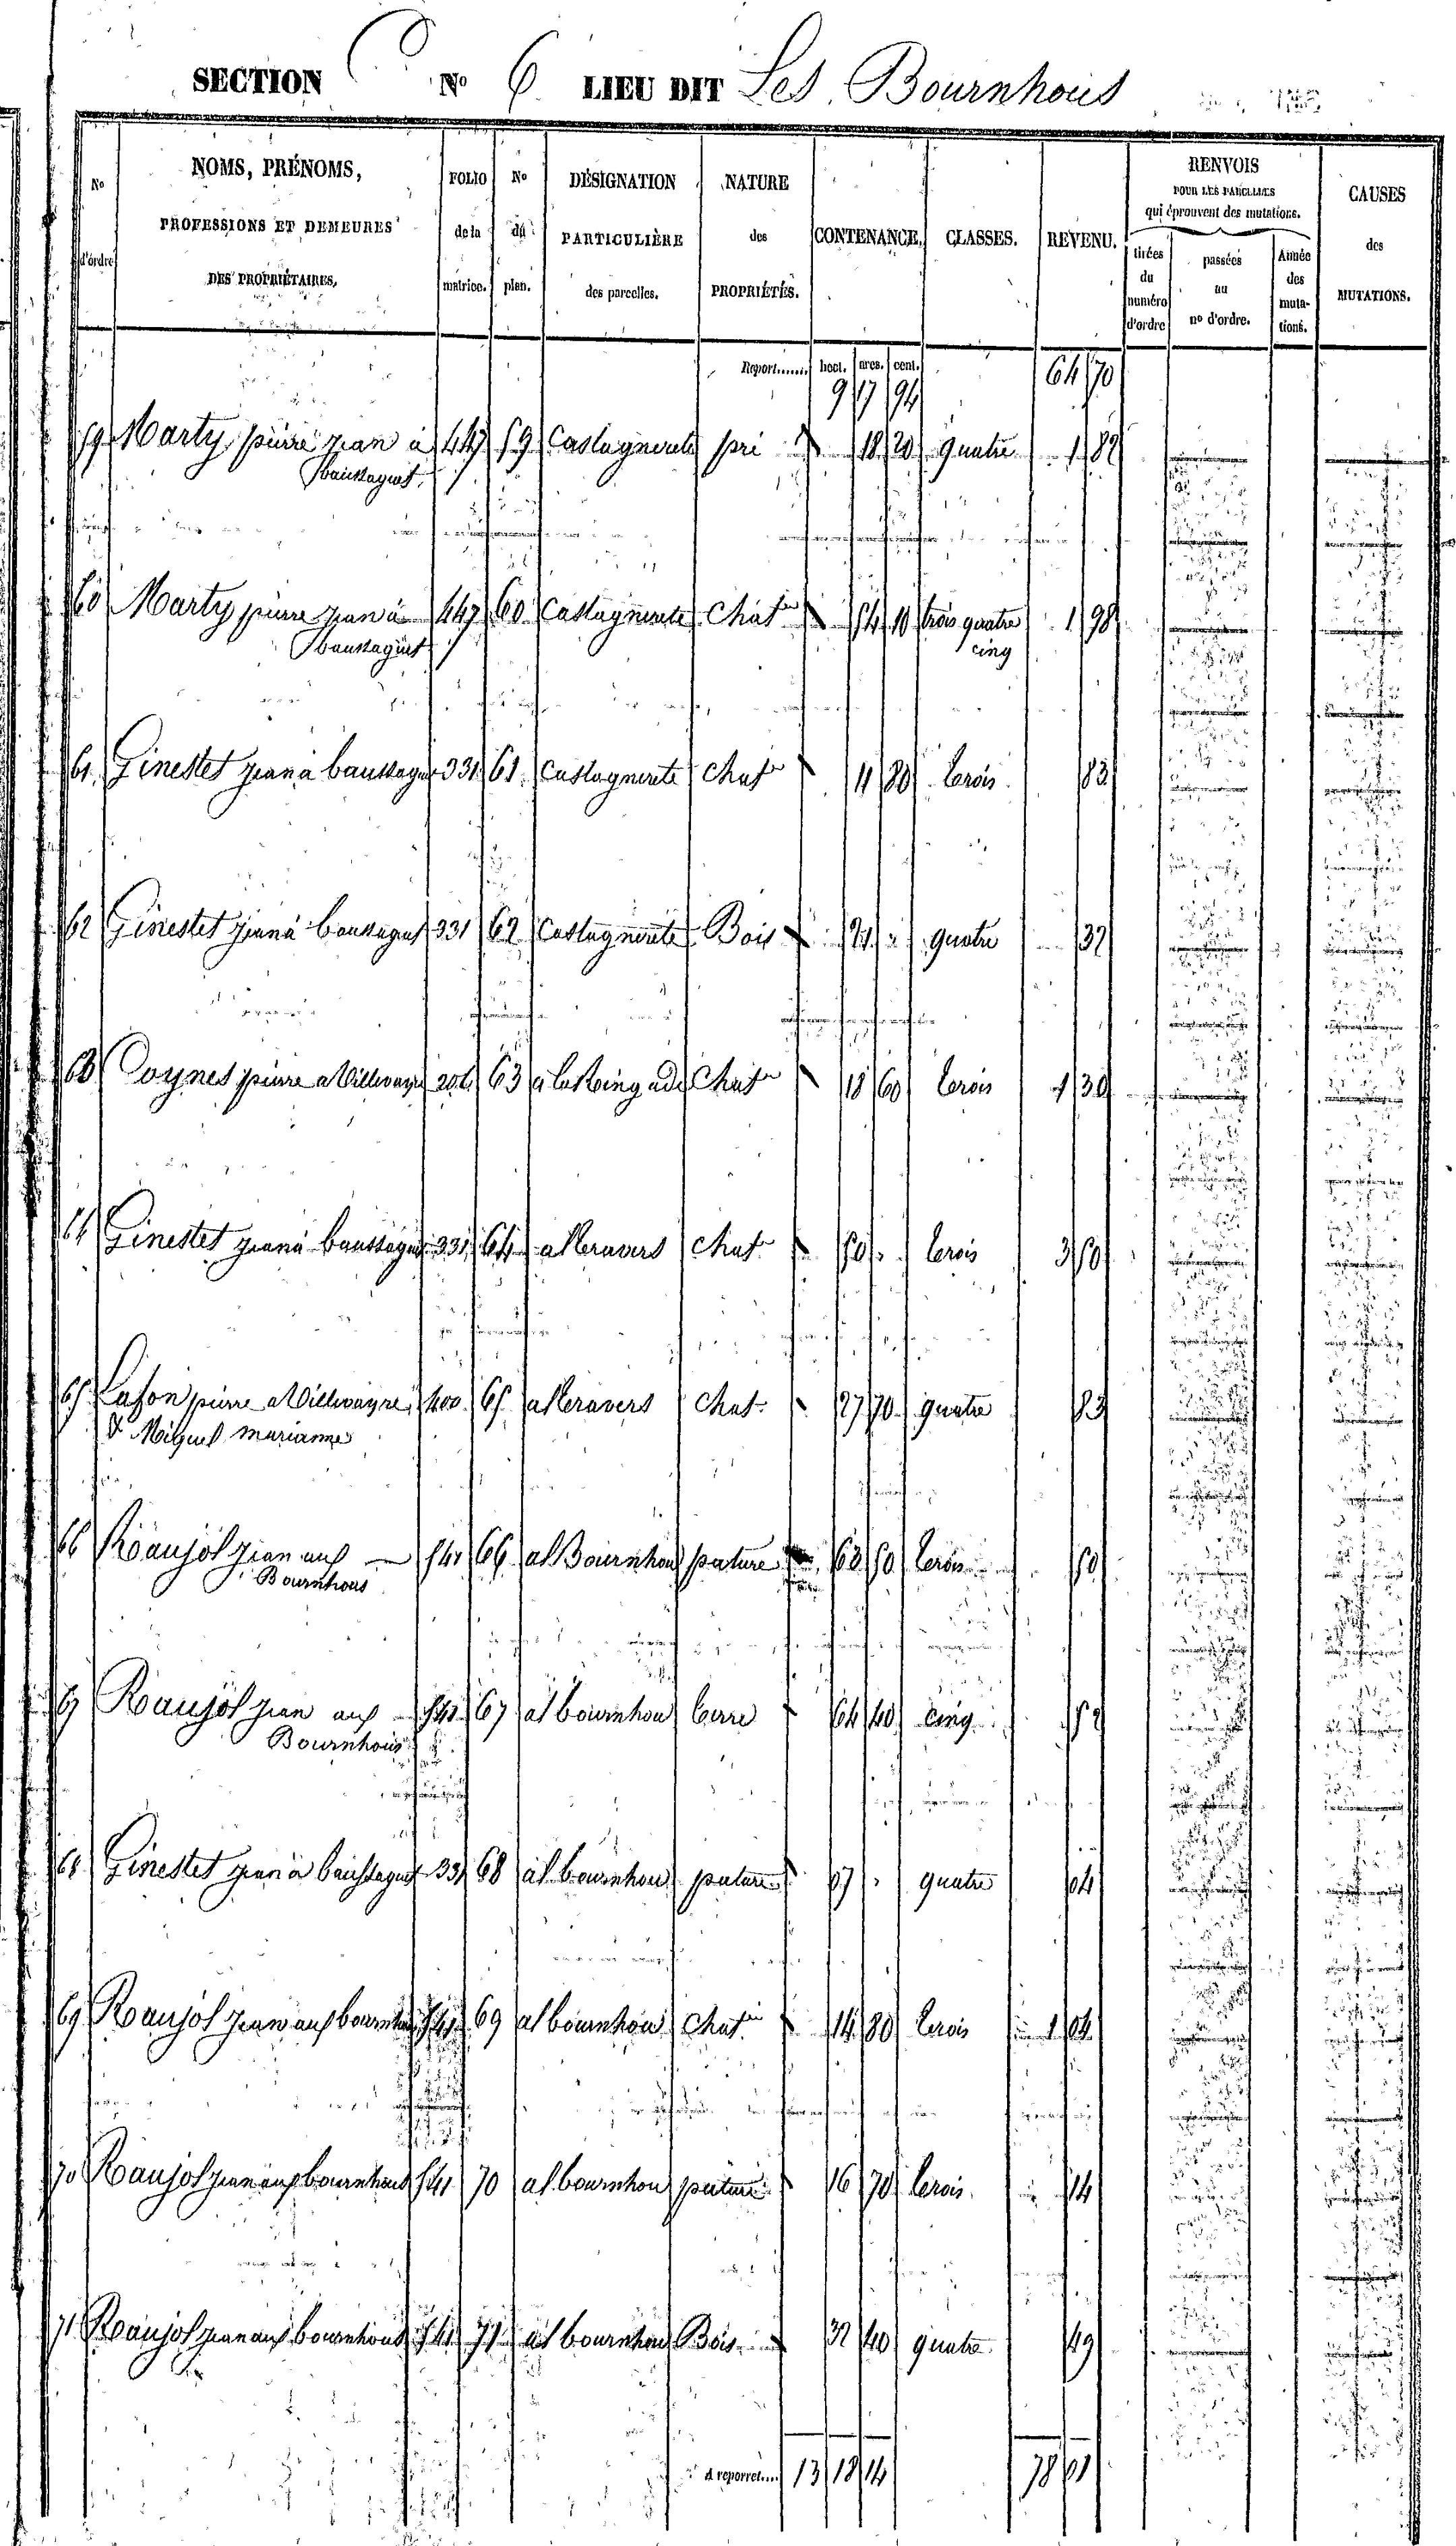 SECTION C No 6 LIEU DIT Les Bournhous
No d'ordre | NOMS, PRÉNOMS, PROFESSIONS ET DEMEURES DES PROPRIÉTAIRES. | FOLIO de la matrice. | No du plan. | DÉSIGNATION PARTICULIÈRE des parcelles. | NATURE des PROPRIÉTÉS. | CONTENANCE. | CLASSES. | REVENU. | RENVOIS POUR LES PARCELLES qui éprouvent des mutations. | tirées du numéro d'ordre | passées au no d'ordre. | Année des mutations. | CAUSES des MUTATIONS.
Report...... hect. ares. cent.
9 17 94 64 70
59 Marty pierre jean à 447 59 Castagnerete pré 18 20 quatre 1 82
60 Marty pierre jean à 447 60 Castagnerete Chat 54 10 trois quatre 1 98
cinq
61 Ginestet jean à 331 61 Castagnerete Chat 11 80 trois 83
62 Ginestet jean à 331 62 Castagnerete Bois 21 " quatre 32
63 pierre a 63 Chat 18 60 trois 1 30
64 Ginestet jean à 331 64 al teravers Chat 50 " trois 3 50
65 Lafon pierre a 400 65 al teravers Chat 27 70 quatre 83
& Miquel marianne
66 Raujol jean aux 541 66 al Bournhou pature 63 50 trois 50
Bournhous
67 Raujol jean aux 541 67 al bournhou terre 64 40 cinq
Bournhous
68 Ginestet jean à 331 68 al bournhou pature 07 " quatre 04
69 Raujol jean aux bournhous 541 69 al bournhou Chat 14 80 trois 1 04
70 Raujol jean aux bournhous 541 70 al bournhou pature 16 70 trois 14
71 Raujol jean aux bournhous 541 71 al bournhou Bois 32 40 quatre 49
A reporter.... 13 18 14 78 01